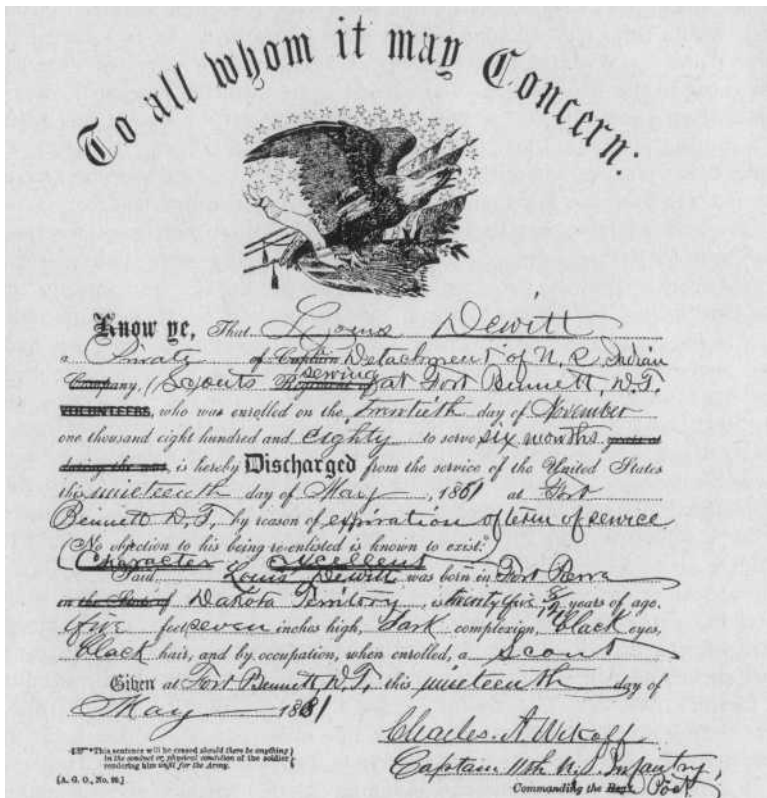 To all whom it may Concern:
Know ye, That Louis Dewitt
a Private of Captain Detachment of U. S. Indian
Company, (Scouts Regiment of serving at Fort Bennett, D.T.
VOLUNTEERS, who was enrolled on the Twentieth day of November
one thousand eight hundred and eighty to serve six months years or
during the war, is hereby Discharged from the service of the United States
this nineteenth day of May, 1881 at Fort
Bennett D.T. by reason of expiration of term of service
(No objection to his being re-enlisted is known to exist.*)
(Character Excellent
Said Louis Dewitt was born in Fort Pierre
in the State of Dakota Territory, is twenty five 3/12 years of age,
five feet seven inches high, Dark complexion, black eyes,
black hair, and by occupation, when enrolled, a scout
Given at Fort Bennett, D.T. this nineteenth day of
May 1881
Charles A Wikoff
Captain 11th U.S. Infantry,
Commanding the Reg't. Post
*This sentence will be erased should there be anything
in the conduct or physical condition of the soldier
rendering him unfit for the Army.
[A. G. O., No. 99.]